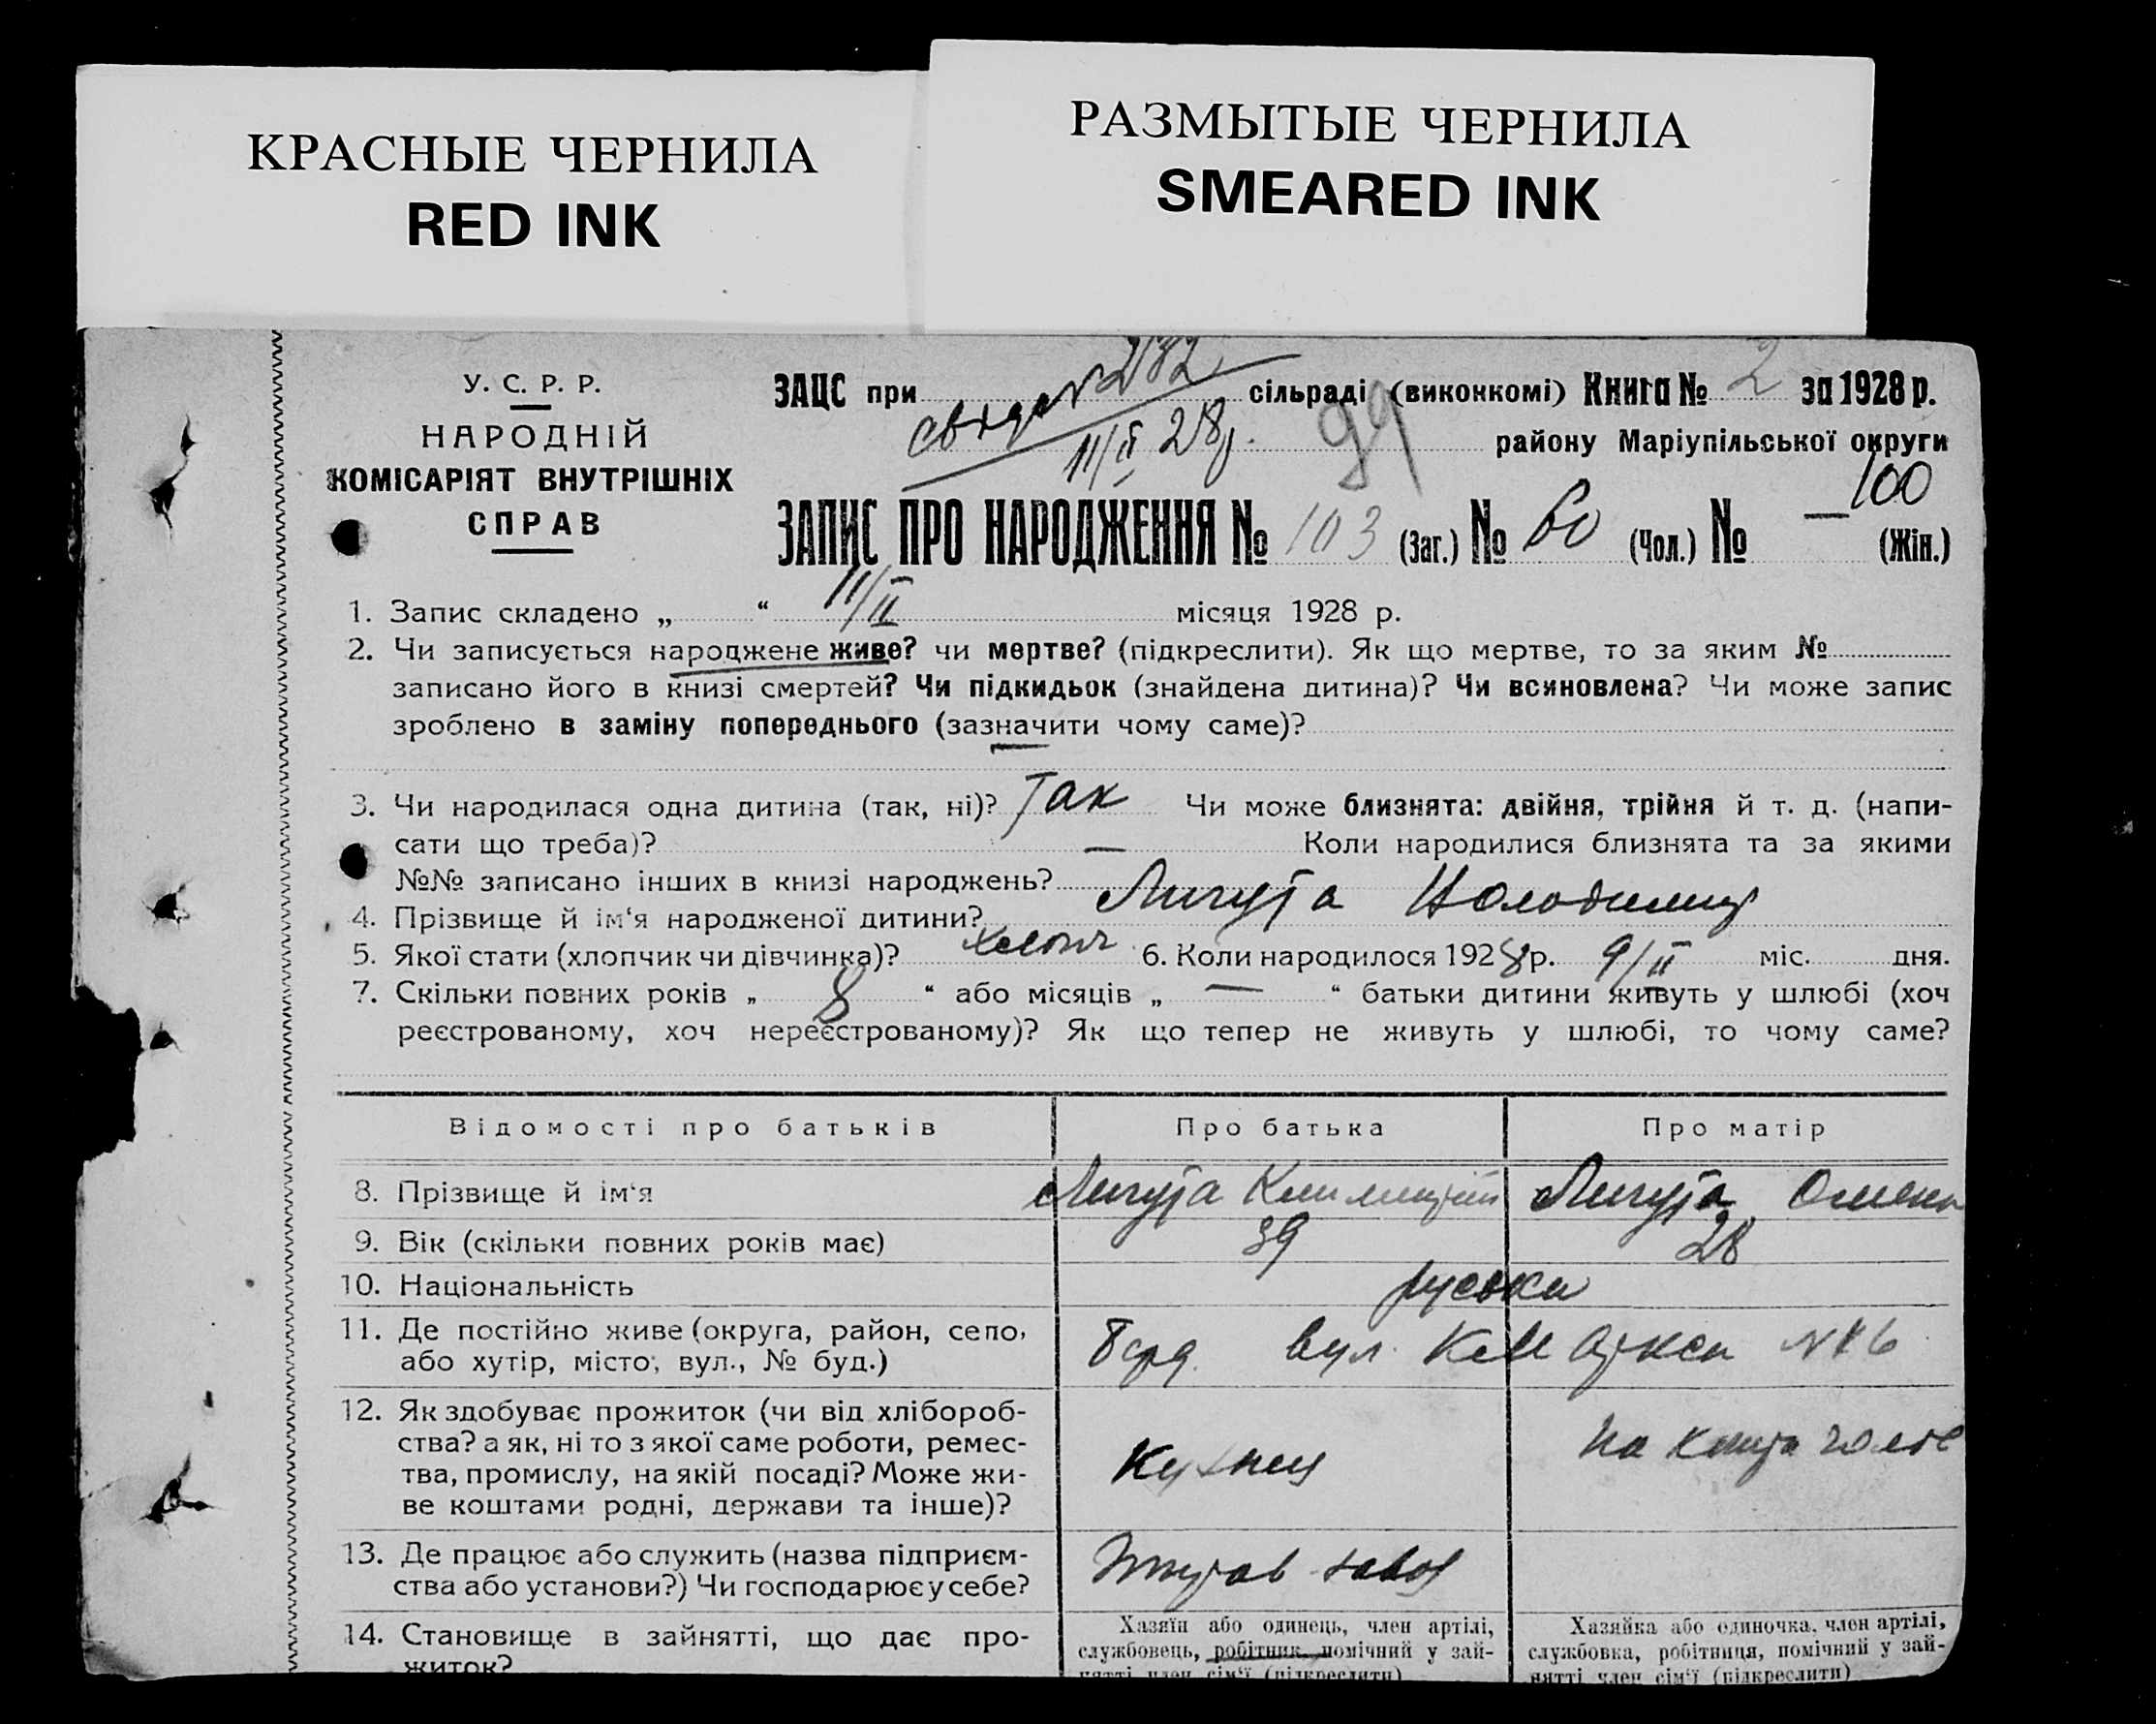 КРАСНЫЕ ЧЕРНИЛА
RED INK
РАЗМЫТЫЕ ЧЕРНИЛА
SMEARED INK
У. С. Р. Р.
НАРОДНІЙ
КОМІСАРІЯТ ВНУТРІШНІХ
СПРАВ
282
ЗАЦС при сільраді (виконкомі) Книга № 2 за 1928 р.
11/II 28р. 99 району Маріупільської округи
100
ЗАПИС ПРО НАРОДЖЕННЯ № 103 (Заг.) № 60 (Чол.) № — (Жін.)
1. Запис складено „ “ 11/II місяця 1928 р.
2. Чи записується народжене живе? чи мертве? (підкреслити). Як що мертве, то за яким №
записано його в книзі смертей? Чи підкидьок (знайдена дитина)? Чи всиновлена? Чи може запис
зроблено в заміну попереднього (зазначити чому саме)?
—
3. Чи народилася одна дитина (так, ні)? Так Чи може близнята: двійня, трійня й т. д. (напи-
сати що треба)? — Коли народилися близнята та за якими
№№ записано інших в книзі народжень?
4. Прізвище й ім‘я народженої дитини? Личута Володимир
5. Якої стати (хлопчик чи дівчинка)? хлопч 6. Коли народилося 1928 р. 9/II міс. дня.
7. Скільки повних років „ 8 “ або місяців „ — “ батьки дитини живуть у шлюбі (хоч
реєстрованому, хоч нереєстрованому)? Як що тепер не живуть у шлюбі, то чому саме?
Відомості про батьків Про батька Про матір
8. Прізвище й ім‘я Личута Личута
9. Вік (скільки повних років має) 39 28
10. Національність руськи
11. Де постійно живе (округа, район, село,
або хутір, місто, вул., № буд.) вул. К Маркса
12. Як здобуває прожиток (чи від хлібороб-
ства? а як, ні то з якої саме роботи, ремес-
тва, промислу, на якій посаді? Може жи-
ве коштами родні, держави та інше)? Кузнец
13. Де працює або служить (назва підприєм-
ства або установи?) Чи господарює у себе? завод
14. Становище в зайнятті, що дає про-
житок?
Хазяїн або одинець, член артілі,
службовець, робітник помічний у зай-
нятті член сім‘ї (підкреслити)
Хазяйка або одиночка, член артілі,
службовка, робітниця, помічний у зай-
нятті член сім‘ї (підкреслити)